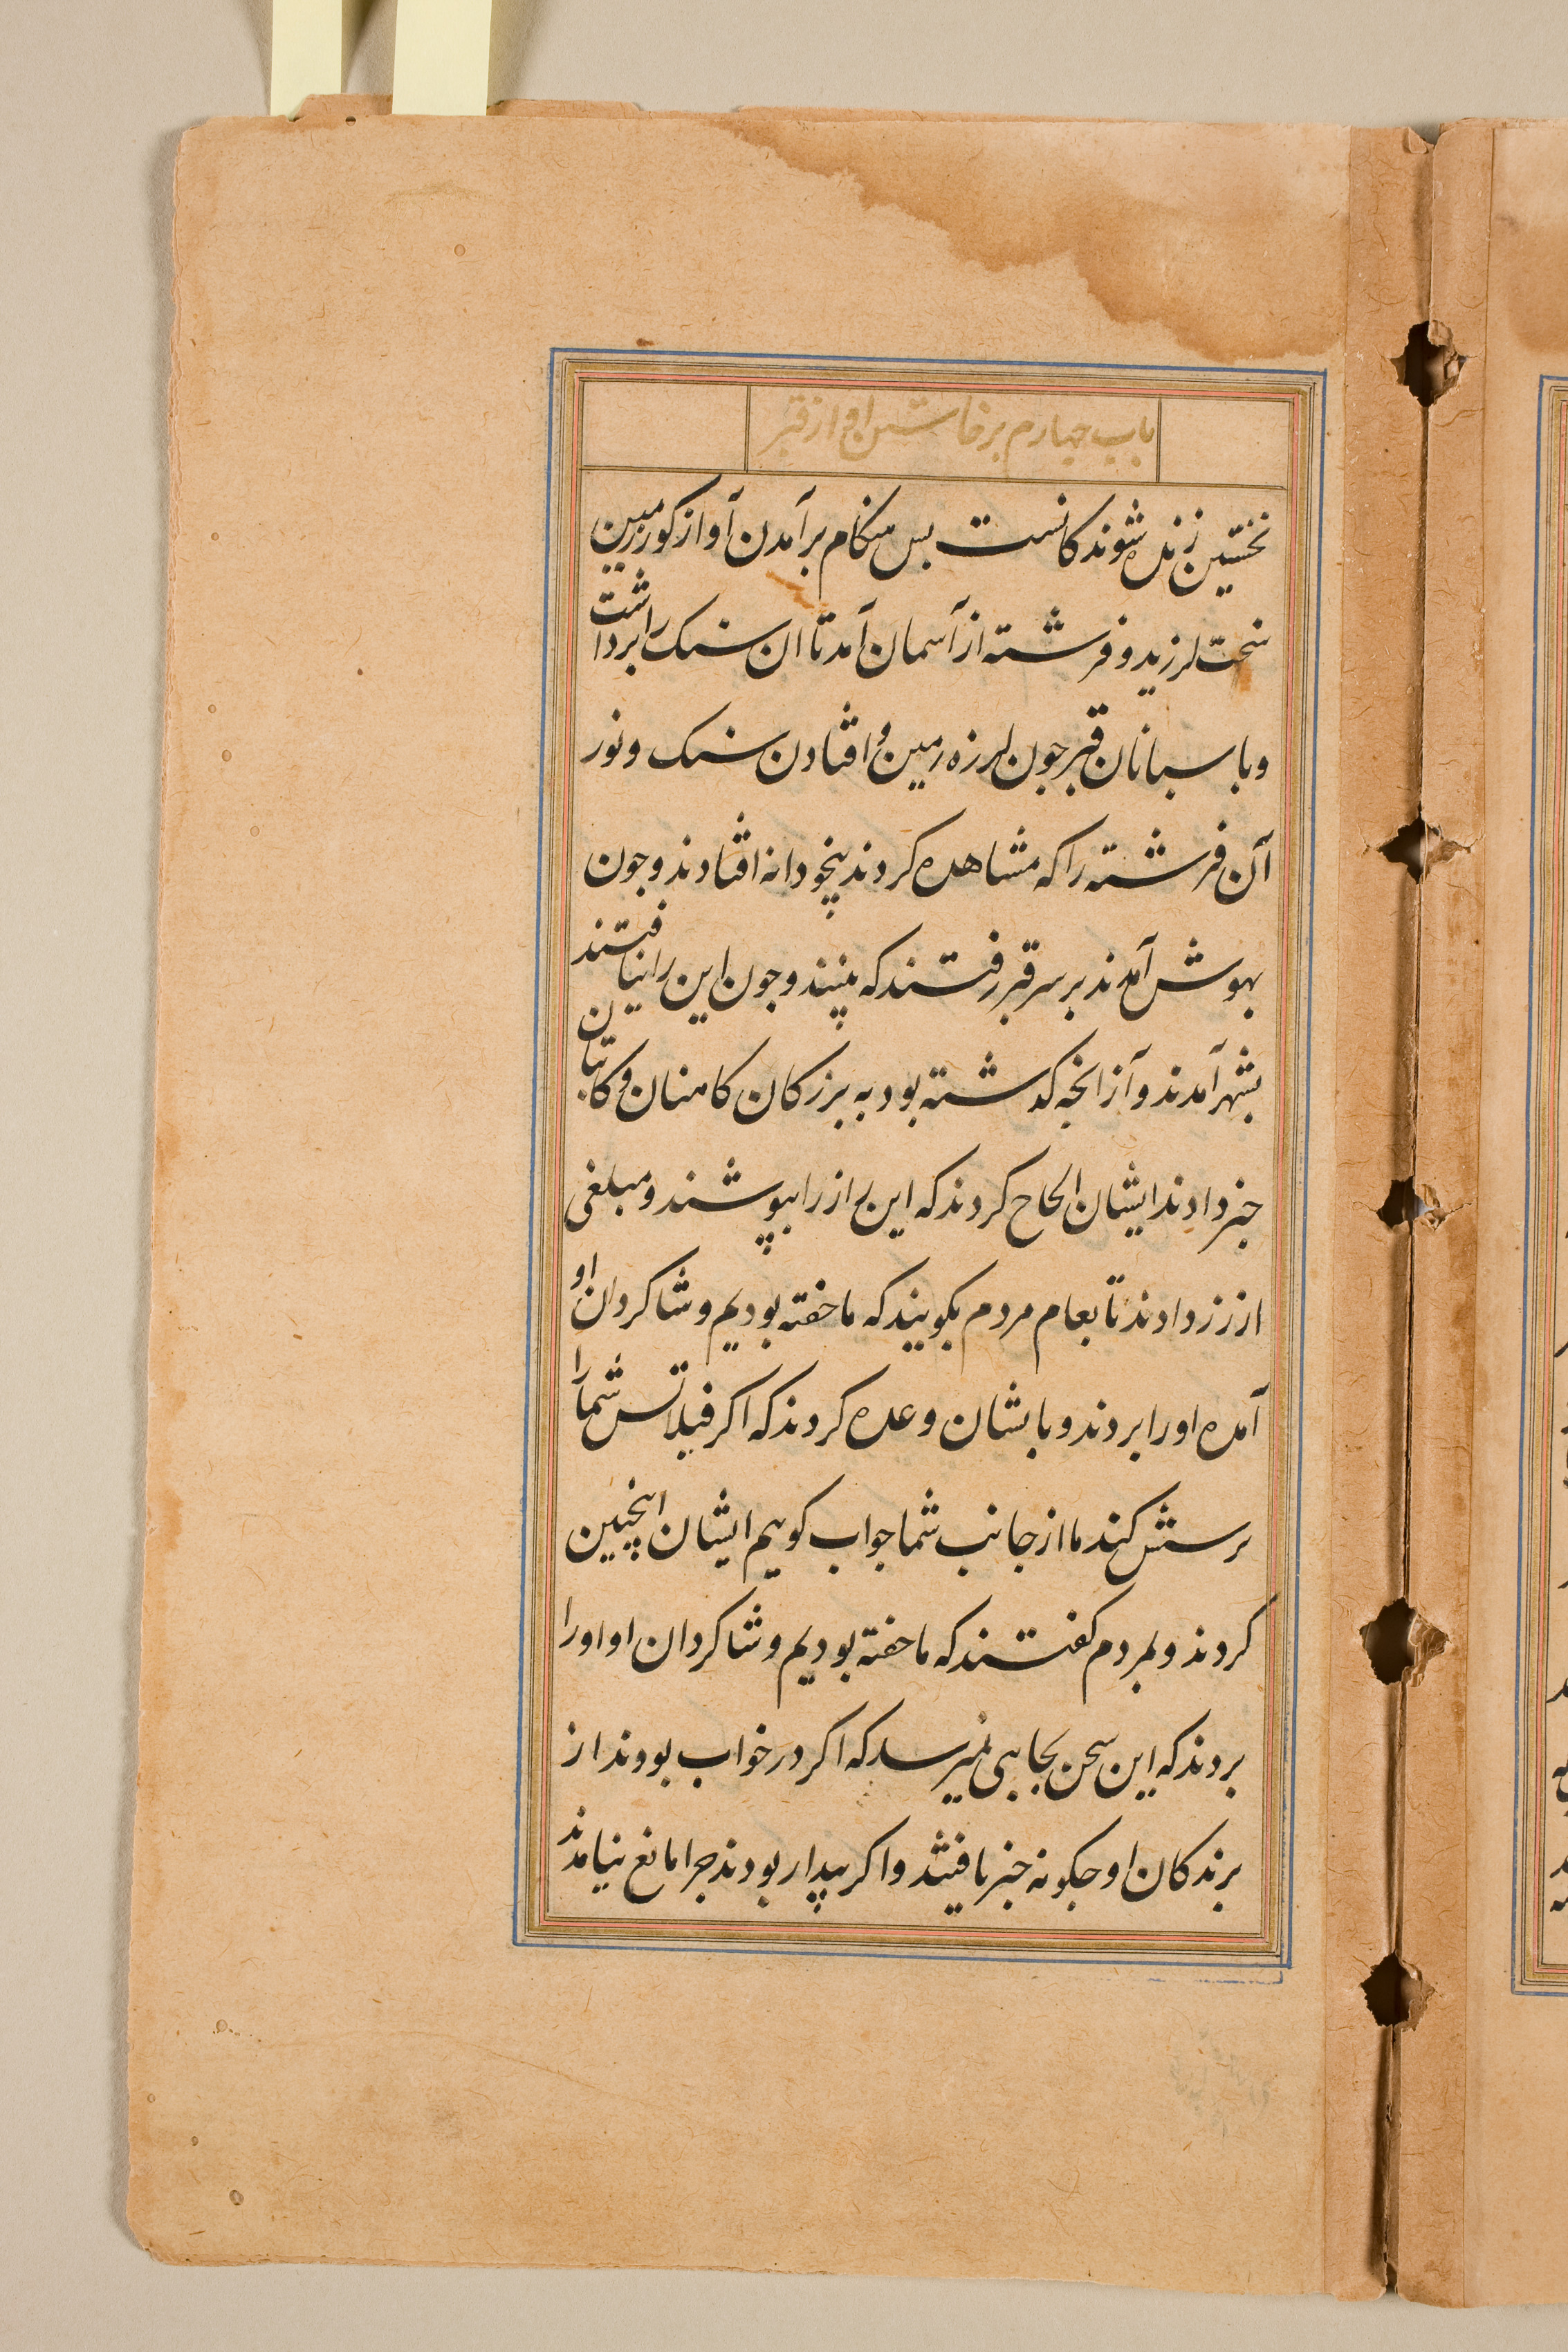 باب چهارم برخاستن او از قبر
نخستین زنده شوندکانست بس هنکام برآمدن آواز کور زمین
سخت لرزید و فرشته از آسمان آمد تا ان سنک را بردا اشت
و باسبانان قبر جون لرزه زمین و افتادن سنک و نور
آن فرشته را که مشاهده کردند بیخودانه افتادند و جون
بهوش آمدند بر سر قبر رفتند که ببینند و جون این را نیافتند
بشهر آمدند و آز انجه کدشته بود به بزرکان کاهنان و کاتبان
خبر دادند ایشان الحاح کردند که این راز را بپوشند و مبلغی
از زر دادند تا بعام مردم بکویند که ما خفته بودیم و شاکردان او
آمده او را بردند و بایشان وعده کردند که اکر فیلاتس شما را
برسش کند ما از جانب شما جواب کوییم ایشان اینچنین
کردند و بمردم کفتند که ما خفته بودیم و شاکردان او او را
بردند که این سخن بجایی نمیرسد که اکر در خواب بودند از
برندکان او جکونه خبر یافتند و اکر بیدار بودند جرا مانع نیامدند